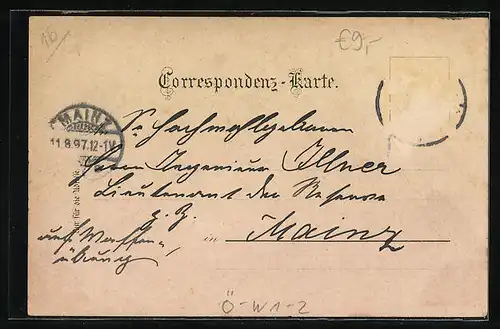 10
€9,-
Correspondenz-Karte.
MAINZ
11.8.97.12-1V.
Sr. Hochwohlgeboren
Herrn Ingenieur Illner
Lieutenant der Reserve
z. Z.
auf Waffen-
in Mainz
übung
Nur für die Adresse
Ö-W1-2